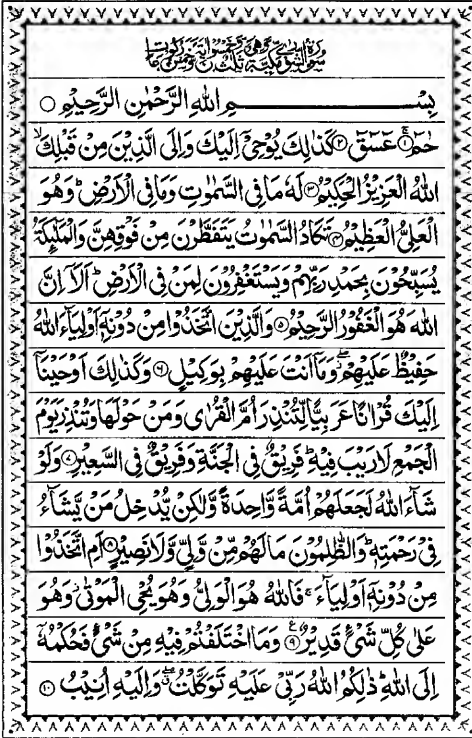 بِسْمِ اللهِ الرَّحْمٰنِ الرَّحِيْمِ ○
حٰمٓ ۝۱ عٓسٓقٓ ۝۲ كَذٰلِكَ يُوْحِيْٓ اِلَيْكَ وَاِلَى الَّذِيْنَ مِنْ قَبْلِكَ ۙ
اللهُ الْعَزِيْزُ الْحَكِيْمُ ۝۳ لَهٗ مَا فِى السَّمٰوٰتِ وَمَا فِى الْاَرْضِ ؕ وَهُوَ
الْعَلِىُّ الْعَظِيْمُ ۝۴ تَكَادُ السَّمٰوٰتُ يَتَفَطَّرْنَ مِنْ فَوْقِهِنَّ وَالْمَلٰٓئِكَةُ
يُسَبِّحُوْنَ بِحَمْدِ رَبِّهِمْ وَيَسْتَغْفِرُوْنَ لِمَنْ فِى الْاَرْضِ ؕ اَلَاۤ اِنَّ
اللهَ هُوَ الْغَفُوْرُ الرَّحِيْمُ ۝۵ وَالَّذِيْنَ اتَّخَذُوْا مِنْ دُوْنِهٖۤ اَوْلِيَآءَ اللهُ
حَفِيْظٌ عَلَيْهِمْ ۖ وَمَاۤ اَنْتَ عَلَيْهِمْ بِوَكِيْلٍ ۝۶ وَكَذٰلِكَ اَوْحَيْنَاۤ
اِلَيْكَ قُرْاٰنًا عَرَبِيًّا لِّتُنْذِرَ اُمَّ الْقُرٰى وَمَنْ حَوْلَهَا وَتُنْذِرَ يَوْمَ
الْجَمْعِ لَا رَيْبَ فِيْهِ ؕ فَرِيْقٌ فِى الْجَنَّةِ وَفَرِيْقٌ فِى السَّعِيْرِ ۝۷ وَلَوْ
شَآءَ اللهُ لَجَعَلَهُمْ اُمَّةً وَّاحِدَةً وَّلٰكِنْ يُّدْخِلُ مَنْ يَّشَآءُ
فِىْ رَحْمَتِهٖ ؕ وَالظّٰلِمُوْنَ مَا لَهُمْ مِّنْ وَّلِىٍّ وَّلَا نَصِيْرٍ ۝۸ اَمِ اتَّخَذُوْا
مِنْ دُوْنِهٖۤ اَوْلِيَآءَ ۚ فَاللهُ هُوَ الْوَلِىُّ وَهُوَ يُحْىِ الْمَوْتٰى ؗ وَهُوَ
عَلٰى كُلِّ شَىْءٍ قَدِيْرٌ ۝۹ وَمَا اخْتَلَفْتُمْ فِيْهِ مِنْ شَىْءٍ فَحُكْمُهٗۤ
اِلَى اللهِ ؕ ذٰلِكُمُ اللهُ رَبِّىْ عَلَيْهِ تَوَكَّلْتُ ۖ وَاِلَيْهِ اُنِيْبُ ۝۱۰